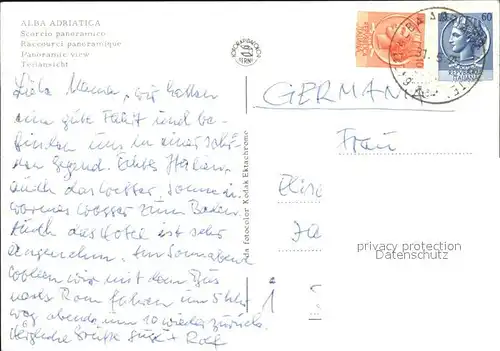 ALBA ADRIATICA
Scorcio panoramico
Raccourci panoramique
Panoramic view
Teilansicht
Liebe Mama, wir hatten
eine gute Fahrt und be-
finden uns in einer schö-
nen Gegend. Echtes Italien,
auch das Wetter, Sonne u.
warmes Wasser zum Baden.
Auch das Hotel ist sehr
angenehm. Am Sonnabend
wollen wir mit dem Bus
nach Rom fahren um 5 Uhr
weg abends um 10 wieder zurück.
Herzliche Grüße + Rolf
da fotocolor Kodak Ektachrome
60
GERMANIA
Frau
privacy protection
Datenschutz